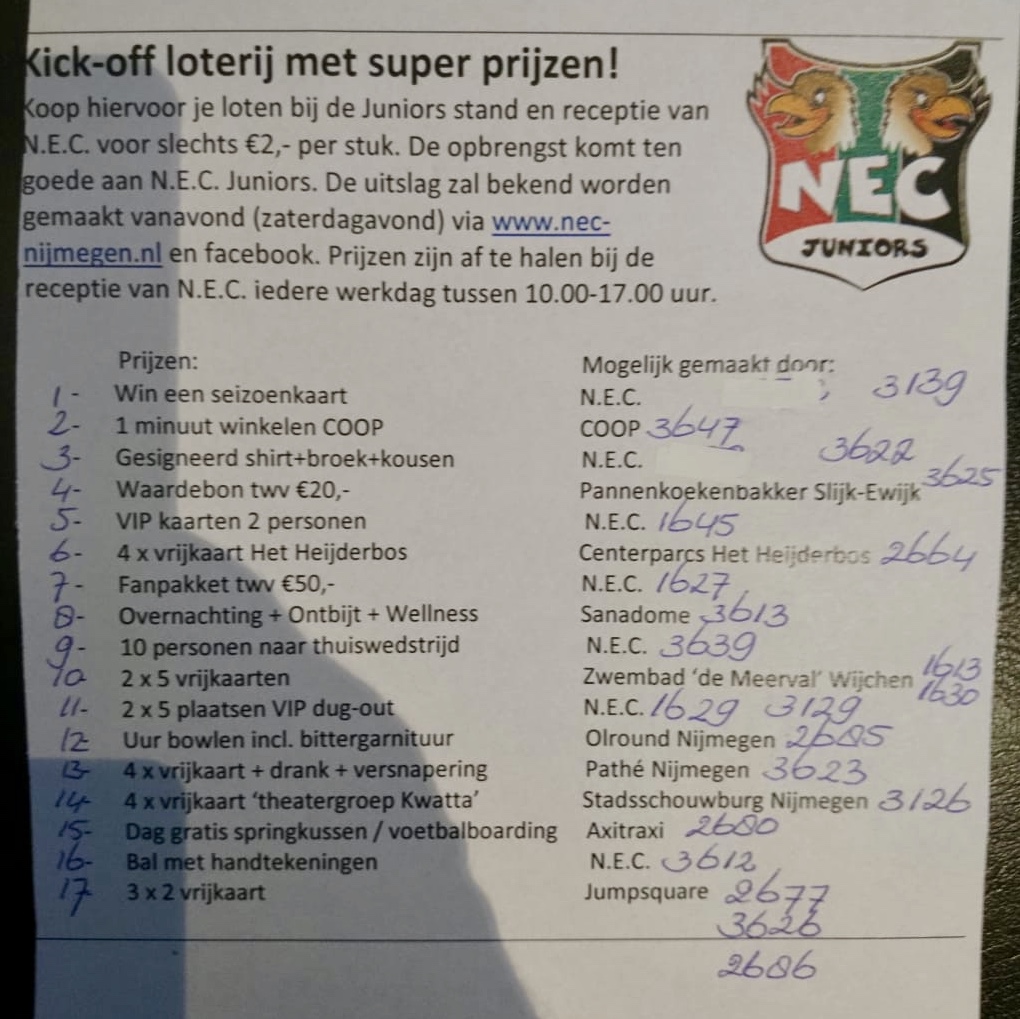 Kick-off loterij met super prijzen!
Koop hiervoor je loten bij de Juniors stand en receptie van
N.E.C. voor slechts €2,- per stuk. De opbrengst komt ten
goede aan N.E.C. Juniors. De uitslag zal bekend worden
gemaakt vanavond (zaterdagavond) via www.nec-
nijmegen.nl en facebook. Prijzen zijn af te halen bij de
receptie van N.E.C. iedere werkdag tussen 10.00-17.00 uur.
NEC
JUNIORS
Prijzen: Mogelijk gemaakt door:
1- Win een seizoenkaart N.E.C. 3139
2- 1 minuut winkelen COOP COOP 3647
3- Gesigneerd shirt+broek+kousen N.E.C. 3622
4- Waardebon twv €20,- Pannenkoekenbakker Slijk-Ewijk 3625
5- VIP kaarten 2 personen N.E.C. 1645
6- 4 x vrijkaart Het Heijderbos Centerparcs Het Heijderbos 2664
7- Fanpakket twv €50,- N.E.C. 1627
8- Overnachting + Ontbijt + Wellness Sanadome 3613
9- 10 personen naar thuiswedstrijd N.E.C. 3639
10 2 x 5 vrijkaarten Zwembad ‘de Meerval’ Wijchen 1613
1630
11- 2 x 5 plaatsen VIP dug-out N.E.C. 1629 3129
12- Uur bowlen incl. bittergarnituur Olround Nijmegen 2685
13- 4 x vrijkaart + drank + versnapering Pathé Nijmegen 3623
14- 4 x vrijkaart ‘theatergroep Kwatta’ Stadsschouwburg Nijmegen 3126
15- Dag gratis springkussen / voetbalboarding Axitraxi 2680
16- Bal met handtekeningen N.E.C. 3612
17 3 x 2 vrijkaart Jumpsquare 2677
3626
2686